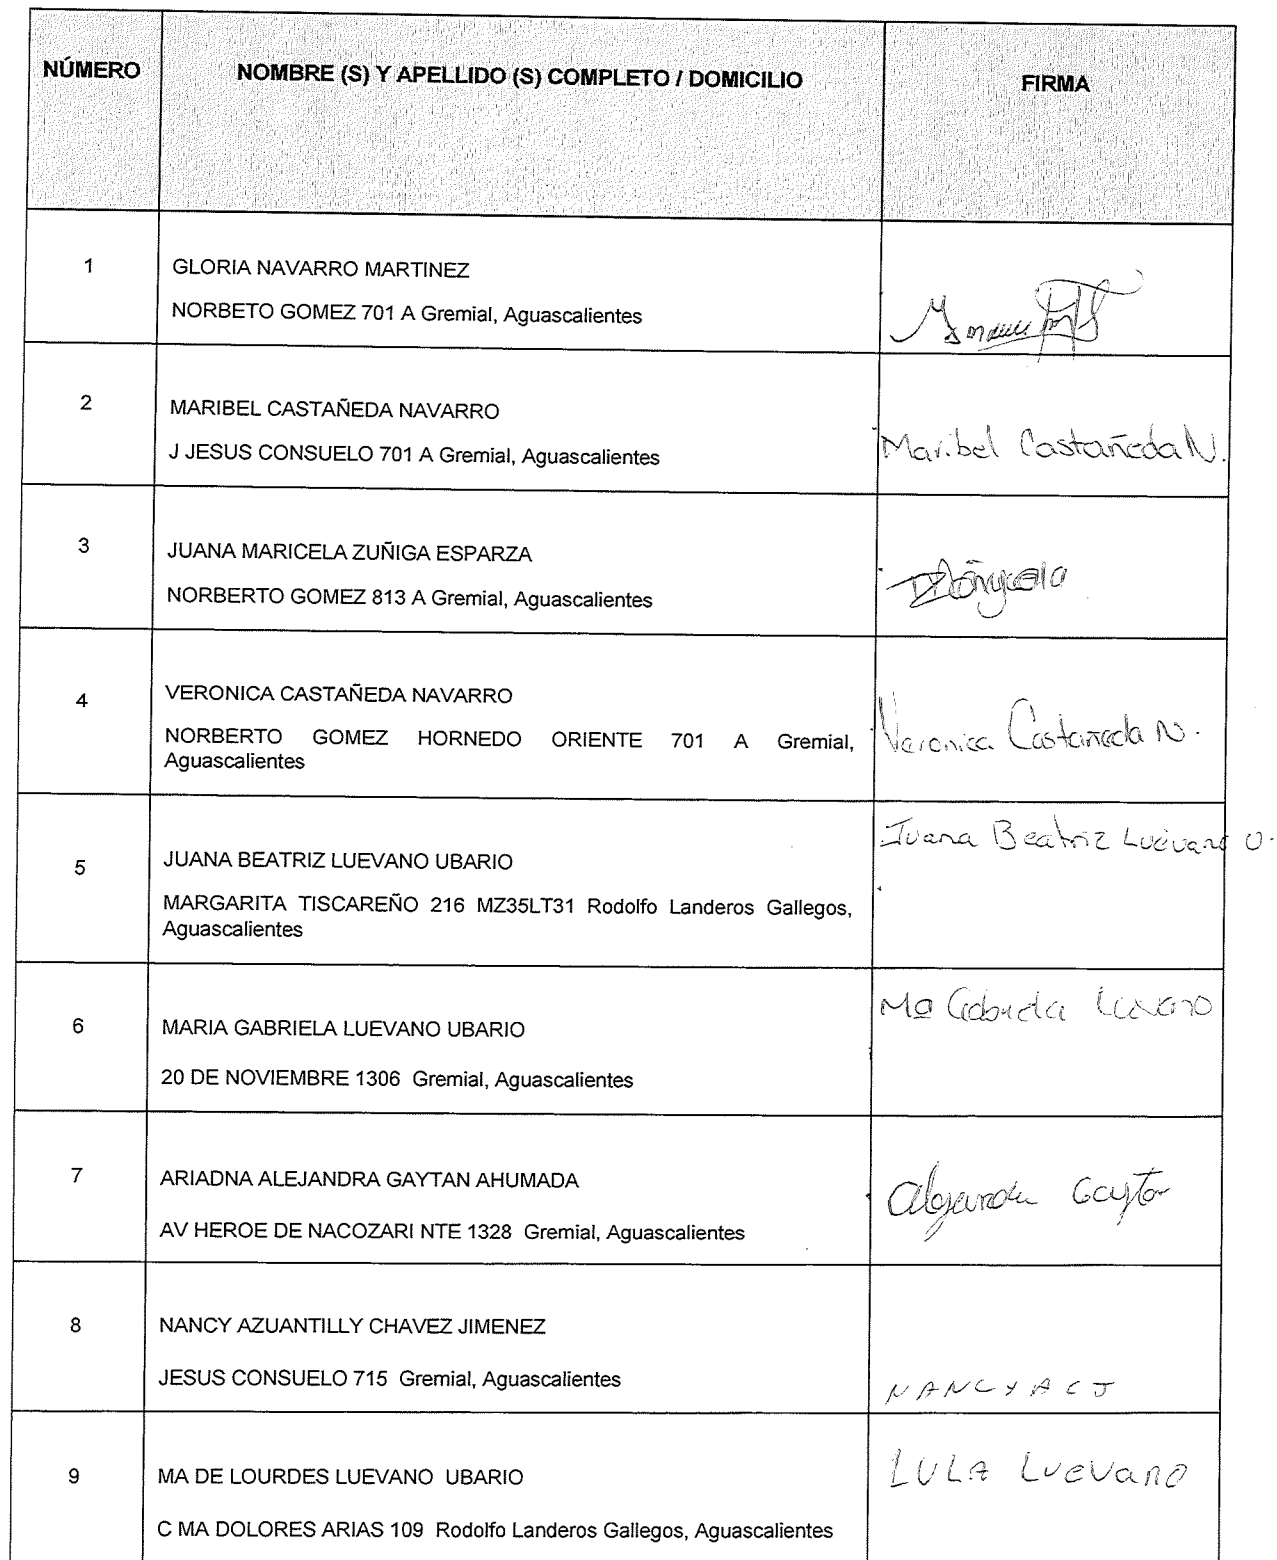 NÚMERO
NOMBRE (S) Y APELLIDO (S) COMPLETO / DOMICILIO
FIRMA
1
GLORIA NAVARRO MARTINEZ
NORBETO GOMEZ 701 A Gremial, Aguascalientes
2
MARIBEL CASTAÑEDA NAVARRO
J JESUS CONSUELO 701 A Gremial, Aguascalientes
Maribel Castañeda N.
3
JUANA MARICELA ZUÑIGA ESPARZA
NORBERTO GOMEZ 813 A Gremial, Aguascalientes
4
VERONICA CASTAÑEDA NAVARRO
NORBERTO GOMEZ HORNEDO ORIENTE 701 A Gremial,
Aguascalientes
Veronica Castañeda N.
5
JUANA BEATRIZ LUEVANO UBARIO
MARGARITA TISCAREÑO 216 MZ35LT31 Rodolfo Landeros Gallegos,
Aguascalientes
Juana Beatriz Luévano U.
6
MARIA GABRIELA LUEVANO UBARIO
20 DE NOVIEMBRE 1306 Gremial, Aguascalientes
Ma Gabriela Luevano
7
ARIADNA ALEJANDRA GAYTAN AHUMADA
AV HEROE DE NACOZARI NTE 1328 Gremial, Aguascalientes
Alejandra Gaytan
8
NANCY AZUANTILLY CHAVEZ JIMENEZ
JESUS CONSUELO 715 Gremial, Aguascalientes
NANCY A C J
9
MA DE LOURDES LUEVANO UBARIO
C MA DOLORES ARIAS 109 Rodolfo Landeros Gallegos, Aguascalientes
LULA Luevano